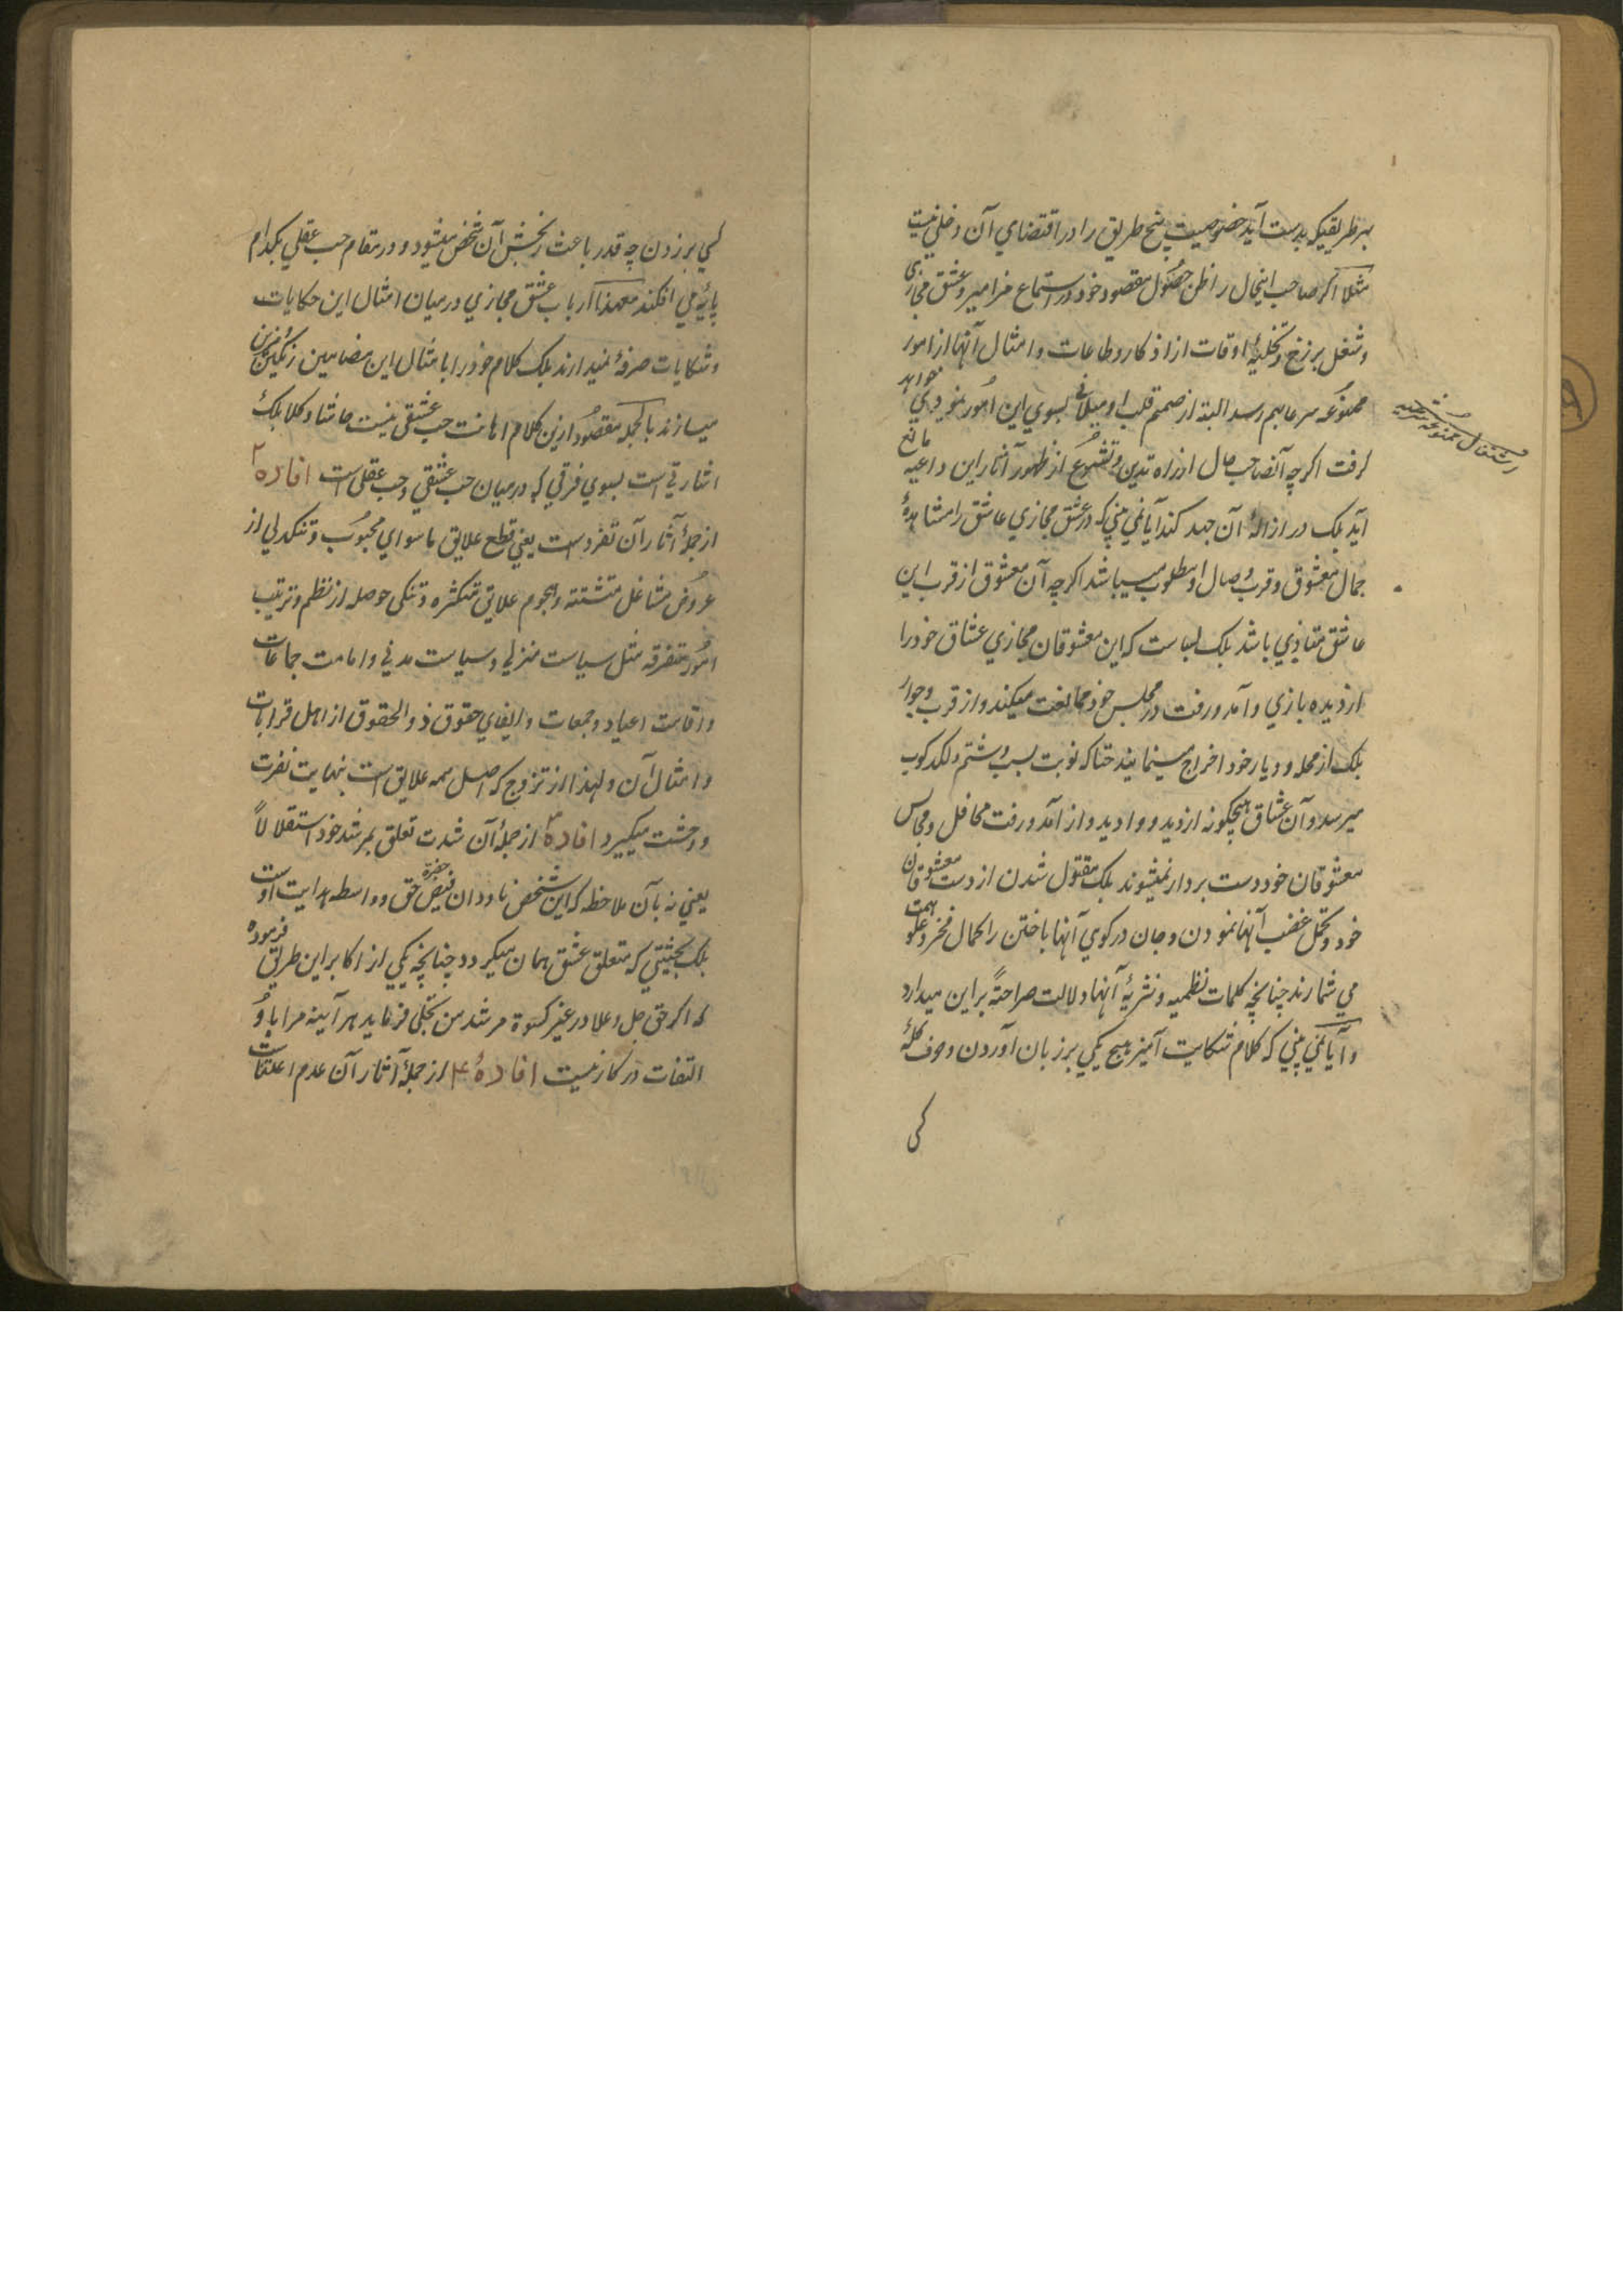 بهر طریقیکه بدست آید خصوصیت هیچ طریق را در اقتضای آن دخلی نیست
مثلا اگر صاحب اینحال را ظن حصول مقصود خود در استماع مزامیر و عشق مجازی
و شغل برزخ و تخلیهٔ اوقات از اذکار و طاعات و امثال آنها از امور
ممنوعه شرعا بهم رسد البته از صمیم قلب او میلانی بسوی این امور نمودی خواهد
گرفت اگرچه آنصاحب حال از راه تدین و تشرع از ظهور آثار این داعیه مانع
آید بلکه در ازالهٔ آن جهد کند آیا نمی بینی که در عشق مجازی عاشق را مشاهدهٔ
جمال معشوق و قرب وصال او مطلوب میباشد اگرچه آن معشوق از قرب این
عاشق متاذی باشد بلکه بسا است که این معشوقان مجازی عشاق خود را
از دیده بازی و آمد و رفت در مجلس خود ممانعت میکنند و از قرب و جوار
بلکه از محله و دیار خود اخراج مینمایند حتا که نوبت بسب و شتم و لکدکوب
میرسد و آن عشاق هیچگونه از دید و وادید و از آمد و رفت محافل و مجالس
معشوقان خود دست بردار نمیشوند بلکه مقتول شدن از دست معشوقان
خود و تحمل غضب آنها نمودن و جان در کوی آنها باختن را کمال فخر و علو همت
می شمارند چنانچه کلمات نظمیه و نثریهٔ آنها دلالت صراحةً بر این میدارد
و آیا نمی بینی که کلام شکایت آمیز هیچ یکی بر زبان آوردن و حرف گلهٔ
کسی
اشتغال ممنوعه شرعیه
کسی بر زدن چه قدر باعث رنجش آن شخص میشود و در مقام حب عقلی بکدام
پایه می افکند معهذا ارباب عشق مجازی در میان امثال این حکایات
و شکایات صرفهٔ نمیدارند بلکه کلام خود را بامثال این مضامین رنگین مزین
میسازند بالجمله مقصود ازین کلام اهانت حب عشقی نیست حاشا و کلا بلکه
اشارتی است بسوی فرقی که در میان حب عشقی و حب عقلی است افاده ۲
از جملهٔ آثار آن تفرد است یعنی قطع علایق ماسوای محبوب و تنکدلی از
عروض مشاغل متشتته و هجوم علایق متکثره و تنکی حوصله از نظم و ترتیب
امور متفرقه مثل سیاست منزلی و سیاست مدنی و امامت جماعات
و اقامت اعیاد و جمعات و ایفای حقوق ذو الحقوق از اهل قرابات
و امثال آن و لهذا از تزوج که اصل همه علایق است بنهایت نفرت
و وحشت میگیرد افاده ۳ از جملهٔ آن شدت تعلق بمرشد خود استقلالاً
یعنی نه بآن ملاحظه که این شخص ناودان فیض حضرة حق و واسطه هدایت اوست
بلکه بحیثیتی که متعلق عشق همان میگردد چنانچه یکی از اکابر این طریق فرموده
که اگر حق جل و علا در غیر کسوة مرشد من تجلی فرماید هر آینه مرا باو
التفات در کار نیست افادهٔ ۴ از جملهٔ آثار آن عدم اعلقات